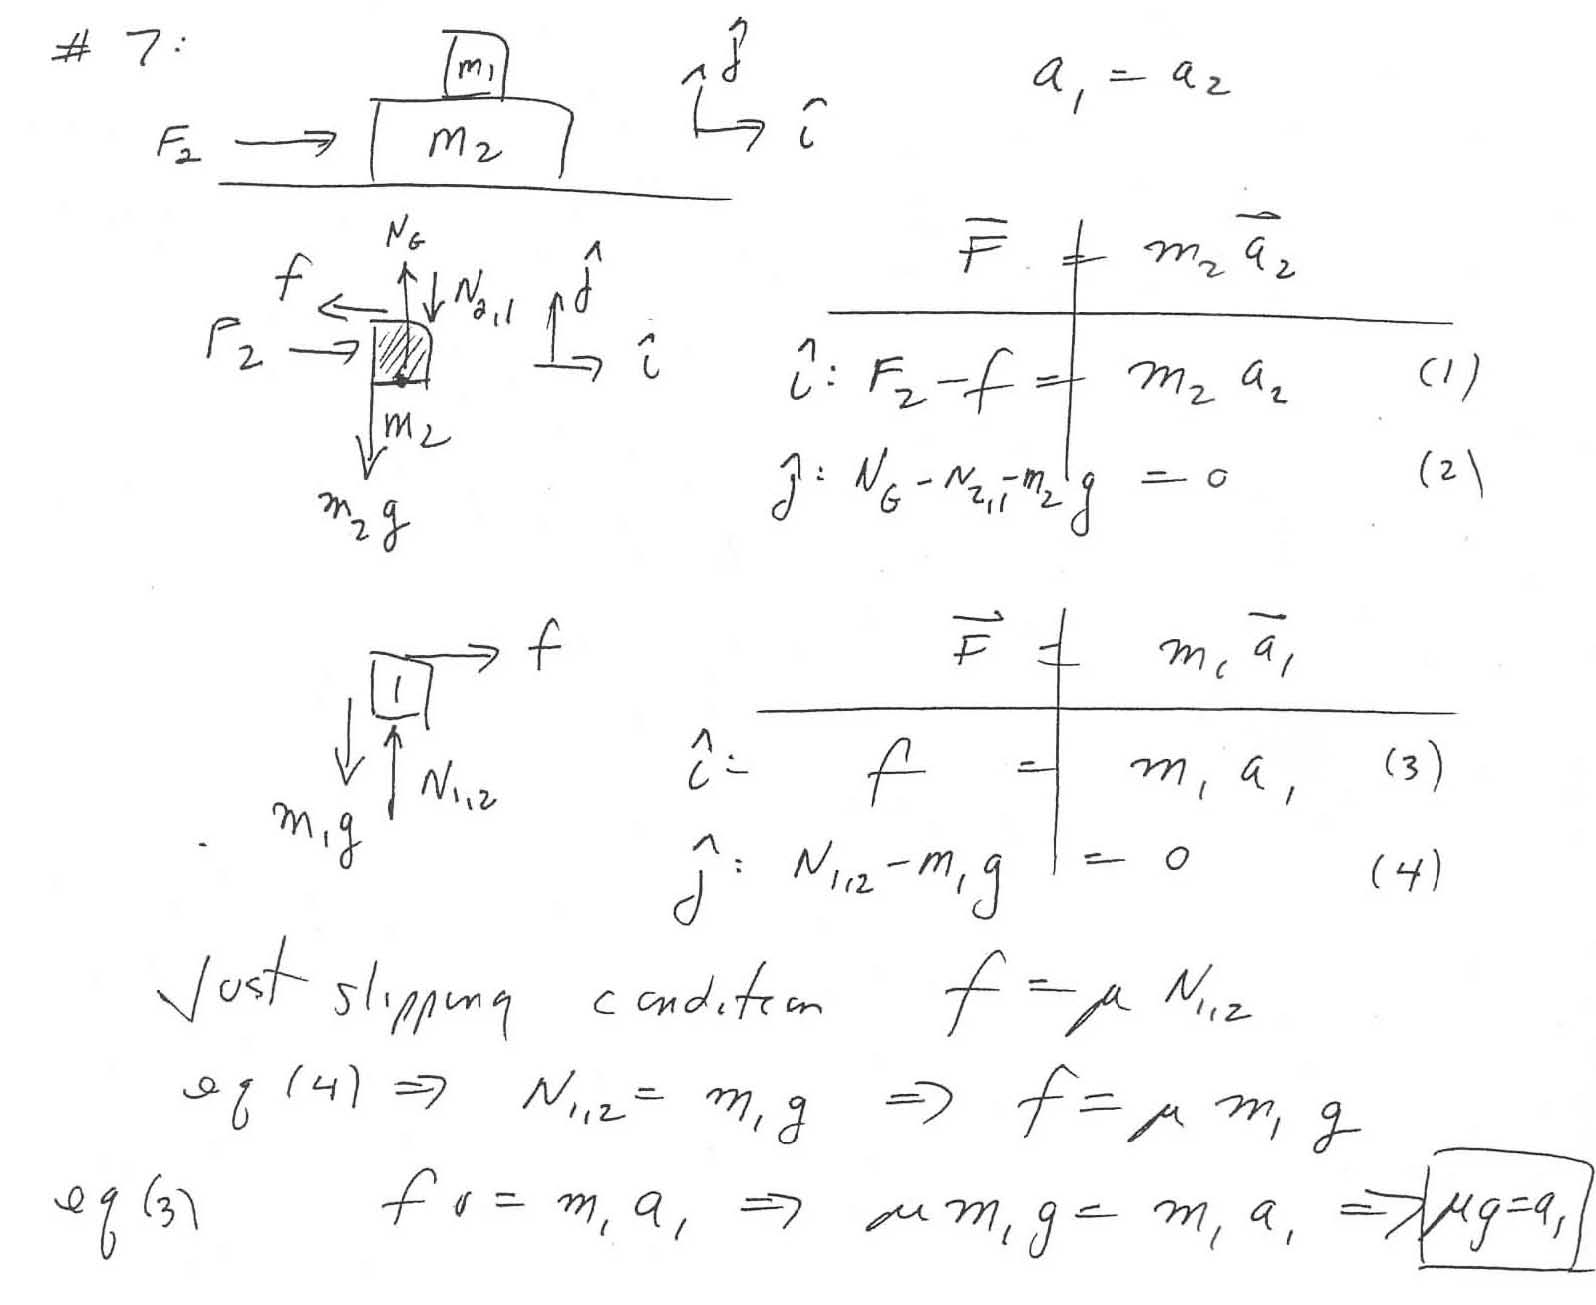 # 7:
m₁
F₂ → m₂
ĵ
î
a₁ = a₂
N_G
f
N₂,₁
F₂
ĵ
î
m₂
m₂g
F̅ = m₂ a⃗₂
î: F₂ - f = m₂ a₂ (1)
ĵ: N_G - N₂,₁ - m₂g = 0 (2)
f
1
N₁,₂
m₁g
F⃗ = m₁ a̅₁
î: f = m₁ a₁ (3)
ĵ: N₁,₂ - m₁g = 0 (4)
Just slipping condition f = μ N₁,₂
eq (4) ⇒ N₁,₂ = m₁g ⇒ f = μ m₁ g
eq (3) f = m₁ a₁ ⇒ μ m₁ g = m₁ a₁ ⇒ μg = a₁